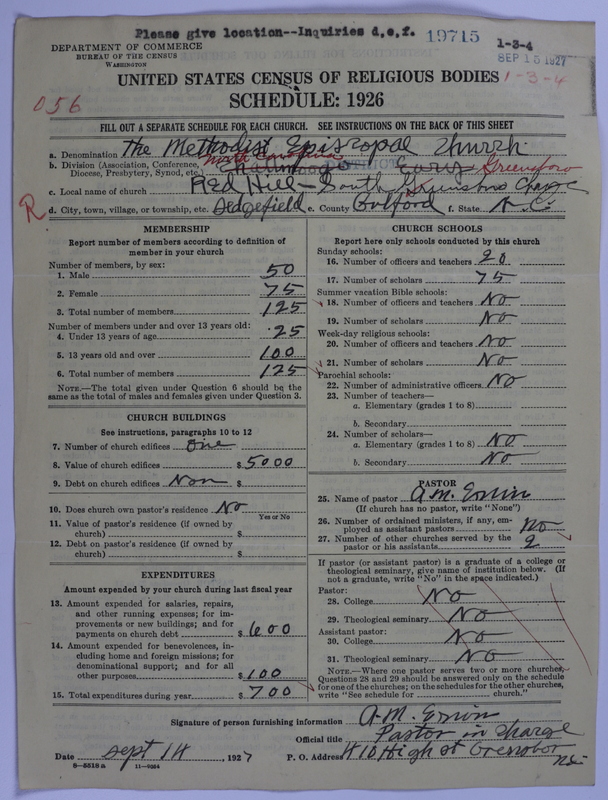 Please give location--Inquiries d,e,f. 19715
1-3-4
DEPARTMENT OF COMMERCE
BUREAU OF THE CENSUS
WASHINGTON
SEP 15 1927
UNITED STATES CENSUS OF RELIGIOUS BODIES 1-3-4
056
SCHEDULE: 1926
FILL OUT A SEPARATE SCHEDULE FOR EACH CHURCH. SEE INSTRUCTIONS ON THE BACK OF THIS SHEET
a. Denomination The Methodist Episcopal Church
b. Division (Association, Conference, North Carolina Greensboro
Diocese, Presbytery, Synod, etc.)
c. Local name of church Red Hill - South Greensboro Charge
R
d. City, town, village, or township, etc. Sedgefield e. County Guilford f. State N.C.
MEMBERSHIP
Report number of members according to definition of
member in your church
Number of members, by sex:
1. Male 50
2. Female 75
3. Total number of members 125
Number of members under and over 13 years old:
4. Under 13 years of age 25
5. 13 years old and over 100
6. Total number of members 125
NOTE.—The total given under Question 6 should be the
same as the total of males and females given under Question 3.
CHURCH BUILDINGS
See instructions, paragraphs 10 to 12
7. Number of church edifices one
8. Value of church edifices $ 5000
9. Debt on church edifices Non $
10. Does church own pastor's residence? No
Yes or No
11. Value of pastor's residence (if owned by
church) $
12. Debt on pastor's residence (if owned by
church) $
EXPENDITURES
Amount expended by your church during last fiscal year
13. Amount expended for salaries, repairs,
and other running expenses; for im-
provements or new buildings; and for
payments on church debt $ 600
14. Amount expended for benevolences, in-
cluding home and foreign missions; for
denominational support; and for all
other purposes $ 100
15. Total expenditures during year $ 700
CHURCH SCHOOLS
Report here only schools conducted by this church
Sunday schools:
16. Number of officers and teachers 20
17. Number of scholars 75
Summer vacation Bible schools:
18. Number of officers and teachers No
19. Number of scholars No
Week-day religious schools:
20. Number of officers and teachers No
21. Number of scholars No
Parochial schools:
22. Number of administrative officers No
23. Number of teachers—
a. Elementary (grades 1 to 8)
b. Secondary
24. Number of scholars—
a. Elementary (grades 1 to 8) No
b. Secondary No
PASTOR
25. Name of pastor A.M. Ervin
(If church has no pastor, write "None")
26. Number of ordained ministers, if any, em-
ployed as assistant pastors No
27. Number of other churches served by the
pastor or his assistants 2
If pastor (or assistant pastor) is a graduate of a college or
theological seminary, give name of institution below. (If
not a graduate, write "No" in the space indicated.)
Pastor:
28. College No
29. Theological seminary No
Assistant pastor:
30. College No
31. Theological seminary No
NOTE.—Where one pastor serves two or more churches,
Questions 28 and 29 should be answered only on the schedule
for one of the churches; on the schedules for the other churches,
write "See schedule for church."
Signature of person furnishing information A.M. Ervin
Official title Pastor in Charge
Date Sept 14, 1927 P. O. Address 410 High st Grensbor
N.C.
8—5518a 11—9064